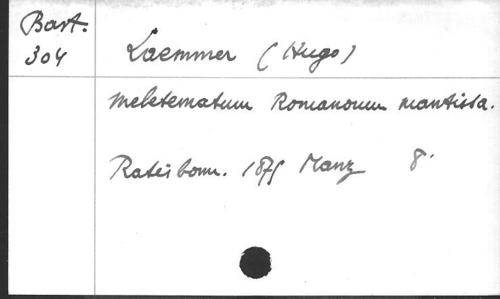 Bart.
304
Laemmer (Hugo)
Meletematum Romanorum mantissa.
Ratisbonn. 1875 Manz 8°